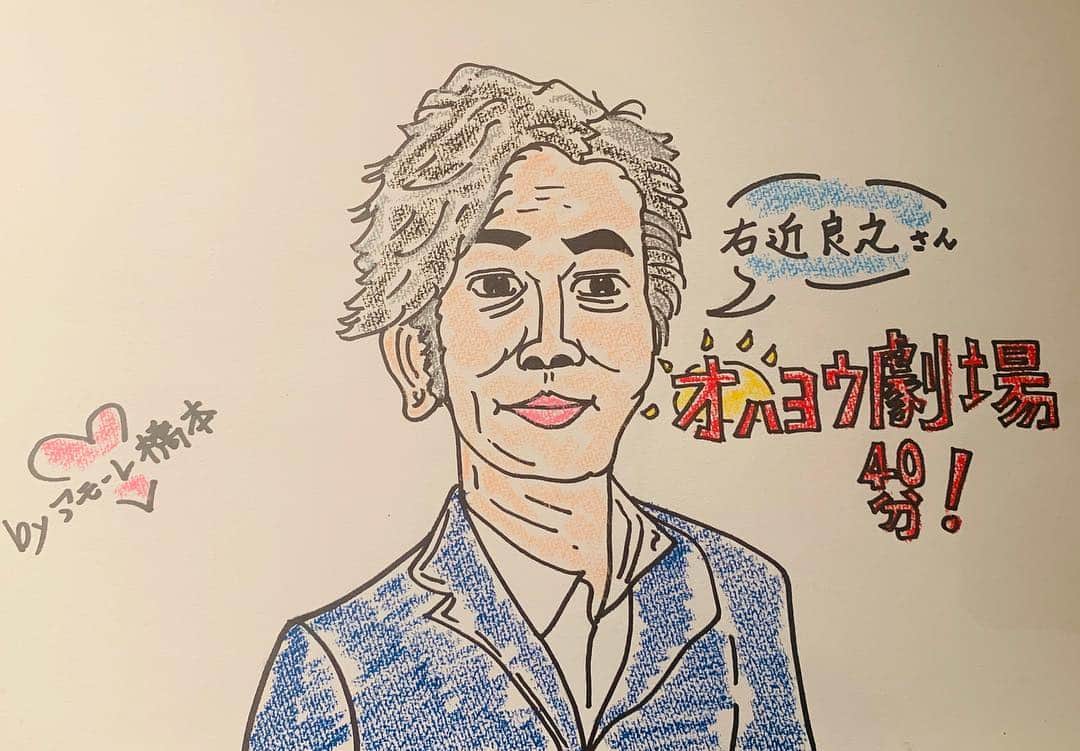 右近良之さん
オハヨウ劇場
40
分!
by アモーレ橋本